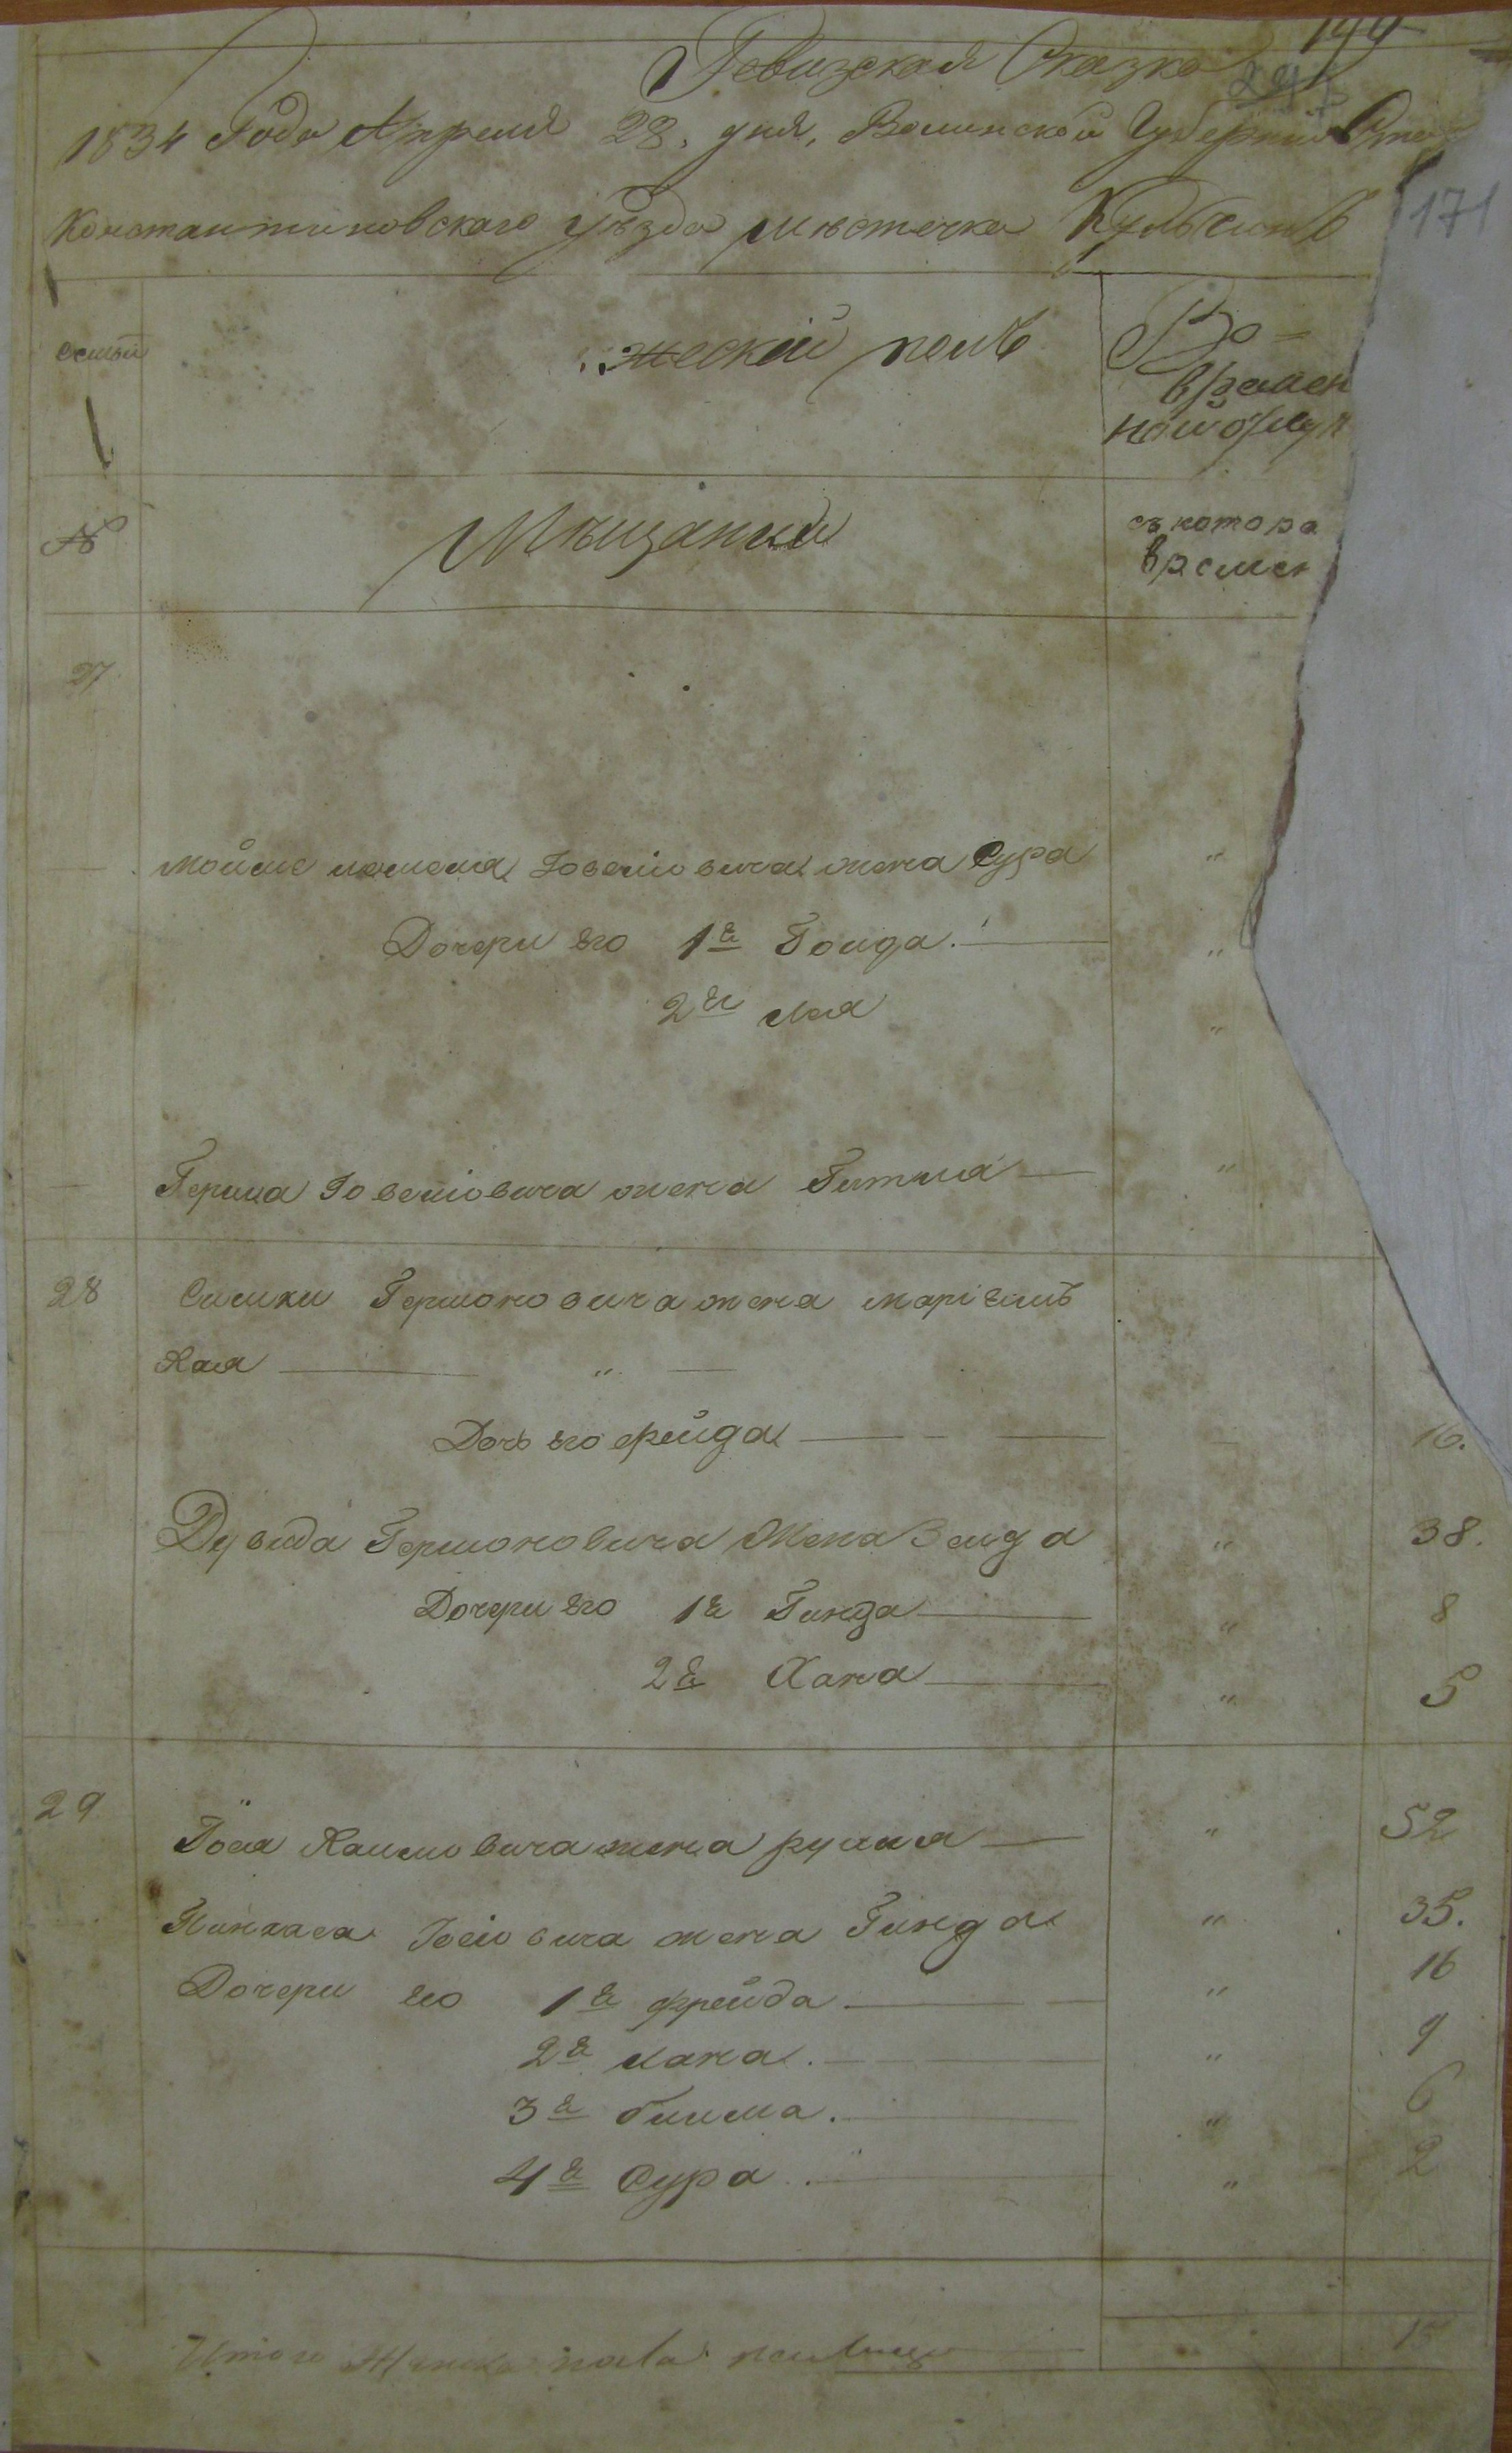 Ревизская Сказка
1834 Года Апреля 28. дня, Волинской Губерніи
Константиновского уѣзда мѣстечка Кульчинъ
171
семьи
женскій полъ
Во
времен
ной отлуч
№
Мѣщанки
съ котора
времен
27
Мойше Іоселіовича жена Сура "
Дочери его 1я Голда. "
2я Лея "
Герша Іоселіовича жена Гитля "
28 Симхи Гершоновича жена Маріемъ
Хая "
Дочь его Фейда 16.
Дувида Гершоновича Жена Зелда " 38.
Дочери его 1я Гинда " 8
2я Хана " 5
29
Іося Хаимовича жена рухля " 52
Пинхаса Іосіовича жена Гинда " 35.
Дочери его 1я фрейда " 16
2я хана. " 9
3я блима. " 6
4я Сура " 2
Итого Женска пола налицо 15